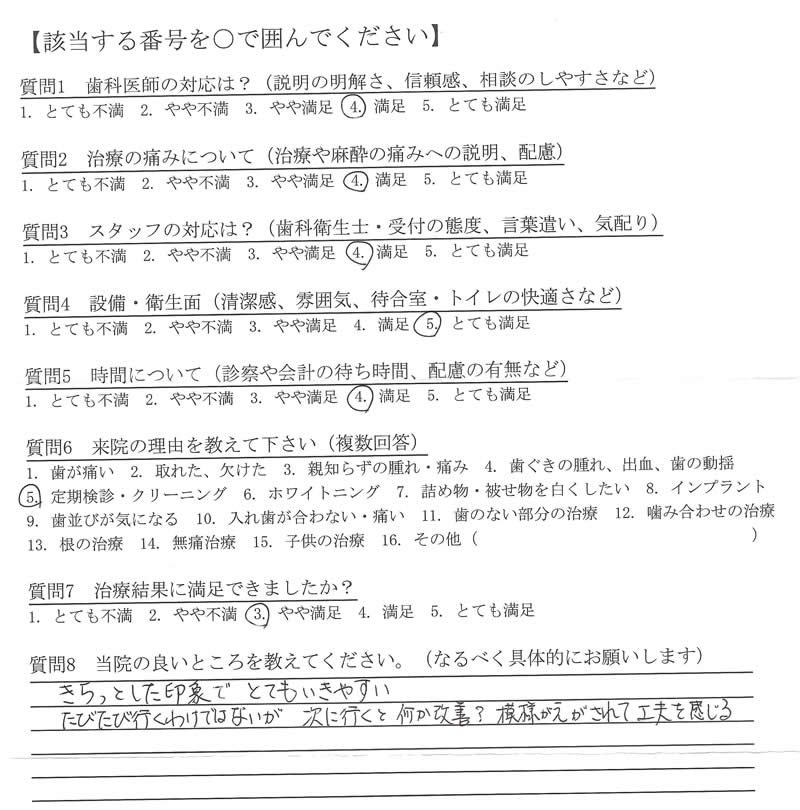 【該当する番号を○で囲んでください】
質問1 歯科医師の対応は?（説明の明解さ、信頼感、相談のしやすさなど）
1. とても不満 2. やや不満 3. やや満足 4. 満足 5. とても満足
質問2 治療の痛みについて（治療や麻酔の痛みへの説明、配慮）
1. とても不満 2. やや不満 3. やや満足 4. 満足 5. とても満足
質問3 スタッフの対応は?（歯科衛生士・受付の態度、言葉遣い、気配り）
1. とても不満 2. やや不満 3. やや満足 4. 満足 5. とても満足
質問4 設備・衛生面（清潔感、雰囲気、待合室・トイレの快適さなど）
1. とても不満 2. やや不満 3. やや満足 4. 満足 5. とても満足
質問5 時間について（診察や会計の待ち時間、配慮の有無など）
1. とても不満 2. やや不満 3. やや満足 4. 満足 5. とても満足
質問6 来院の理由を教えて下さい（複数回答）
1. 歯が痛い 2. 取れた、欠けた 3. 親知らずの腫れ・痛み 4. 歯ぐきの腫れ、出血、歯の動揺
5. 定期検診・クリーニング 6. ホワイトニング 7. 詰め物・被せ物を白くしたい 8. インプラント
9. 歯並びが気になる 10. 入れ歯が合わない・痛い 11. 歯のない部分の治療 12. 噛み合わせの治療
13. 根の治療 14. 無痛治療 15. 子供の治療 16. その他（ ）
質問7 治療結果に満足できましたか?
1. とても不満 2. やや不満 3. やや満足 4. 満足 5. とても満足
質問8 当院の良いところを教えてください。（なるべく具体的にお願いします）
きちっとした印象で とてもいきやすい
たびたび行くわけではないが 次に行くと 何か改善? 模様がえがされて工夫を感じる